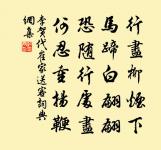 行盡柳煙下
馬蹄白翩翩
恐隨行處盡
何忍重揚鞭
李賀代崔家送客詞典
網集